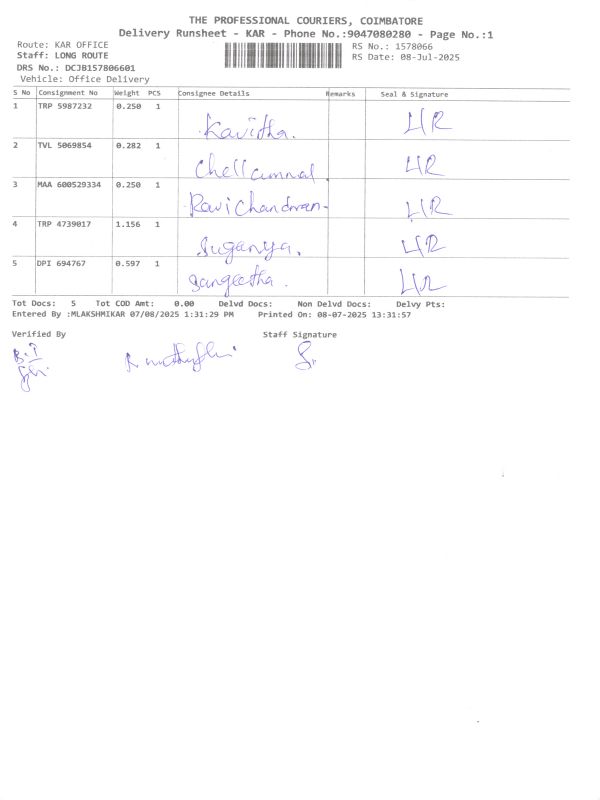 THE PROFESSIONAL COURIERS, COIMBATORE
Delivery Runsheet - KAR - Phone No.:9047080280 - Page No.:1
Route: KAR OFFICE RS No.: 1578066
Staff: LONG ROUTE RS Date: 08-Jul-2025
DRS No.: DCJB157806601
Vehicle: Office Delivery
S No Consignment No Weight PCS Consignee Details Remarks Seal & Signature
1 TRP 5987232 0.250 1 Kavitha. LR
2 TVL 5069854 0.282 1 Chellammal LR
3 MAA 600529334 0.250 1 Ravichandran- LR
4 TRP 4739017 1.156 1 Suganya. LR
5 DPI 694767 0.597 1 Sangeetha. LR
Tot Docs: 5 Tot COD Amt: 0.00 Delvd Docs: Non Delvd Docs: Delvy Pts:
Entered By :MLAKSHMIKAR 07/08/2025 1:31:29 PM Printed On: 08-07-2025 13:31:57
Verified By Staff Signature